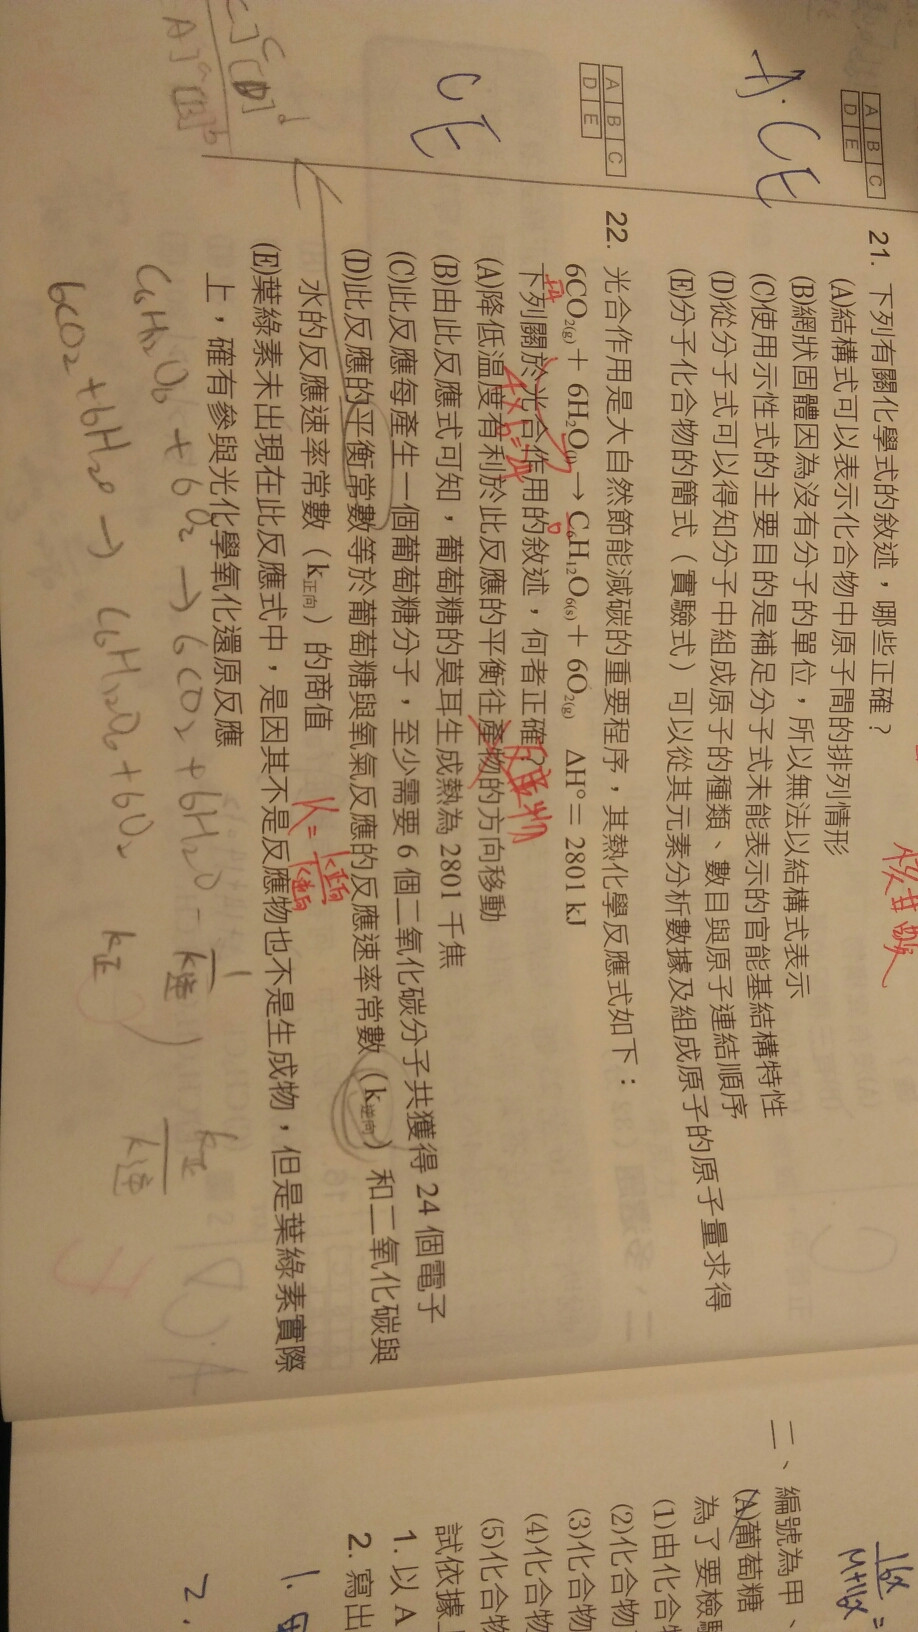 核苷酸
A B C
D E
A.CE
21. 下列有關化學式的敘述，哪些正確？
(A)結構式可以表示化合物中原子間的排列情形
(B)網狀固體因為沒有分子的單位，所以無法以結構式表示
(C)使用示性式的主要目的是補足分子式未能表示的官能基結構特性
(D)從分子式可以得知分子中組成原子的種類、數目與原子連結順序
(E)分子化合物的簡式（實驗式）可以從其元素分析數據及組成原子的原子量求得
A B C
D E
CE
22. 光合作用是大自然節能減碳的重要程序，其熱化學反應式如下：
6CO₂(g) + 6H₂O(l) → C₆H₁₂O₆(s) + 6O₂(g)　ΔH° = 2801 kJ
+4
0
下列關於光合作用的敘述，何者正確？
4×6=24
反應物
(A)降低溫度有利於此反應的平衡往產物的方向移動
(B)由此反應式可知，葡萄糖的莫耳生成熱為 2801 千焦
(C)此反應每產生一個葡萄糖分子，至少需要 6 個二氧化碳分子共獲得 24 個電子
(D)此反應的平衡常數等於葡萄糖與氧氣反應的反應速率常數（k逆向）和二氧化碳與
水的反應速率常數（k正向）的商值
K = k正向 / k逆向
(E)葉綠素未出現在此反應式中，是因其不是反應物也不是生成物，但是葉綠素實際
上，確有參與光化學氧化還原反應
C]ᶜ[D]ᵈ
A]ᵃ[B]ᵇ
C₆H₁₂O₆ + 6O₂ → 6CO₂ + 6H₂O 1/k逆
k正/k逆
6CO₂ + 6H₂O → C₆H₁₂O₆ + 6O₂ k正
16x
M+16x
=
二、編號為甲、
(A)葡萄糖
為了要檢驗
(1)由化合物
(2)化合物
(3)化合物
(4)化合物
(5)化合物
試依據上
1. 以 A
2. 寫出
1.
2.